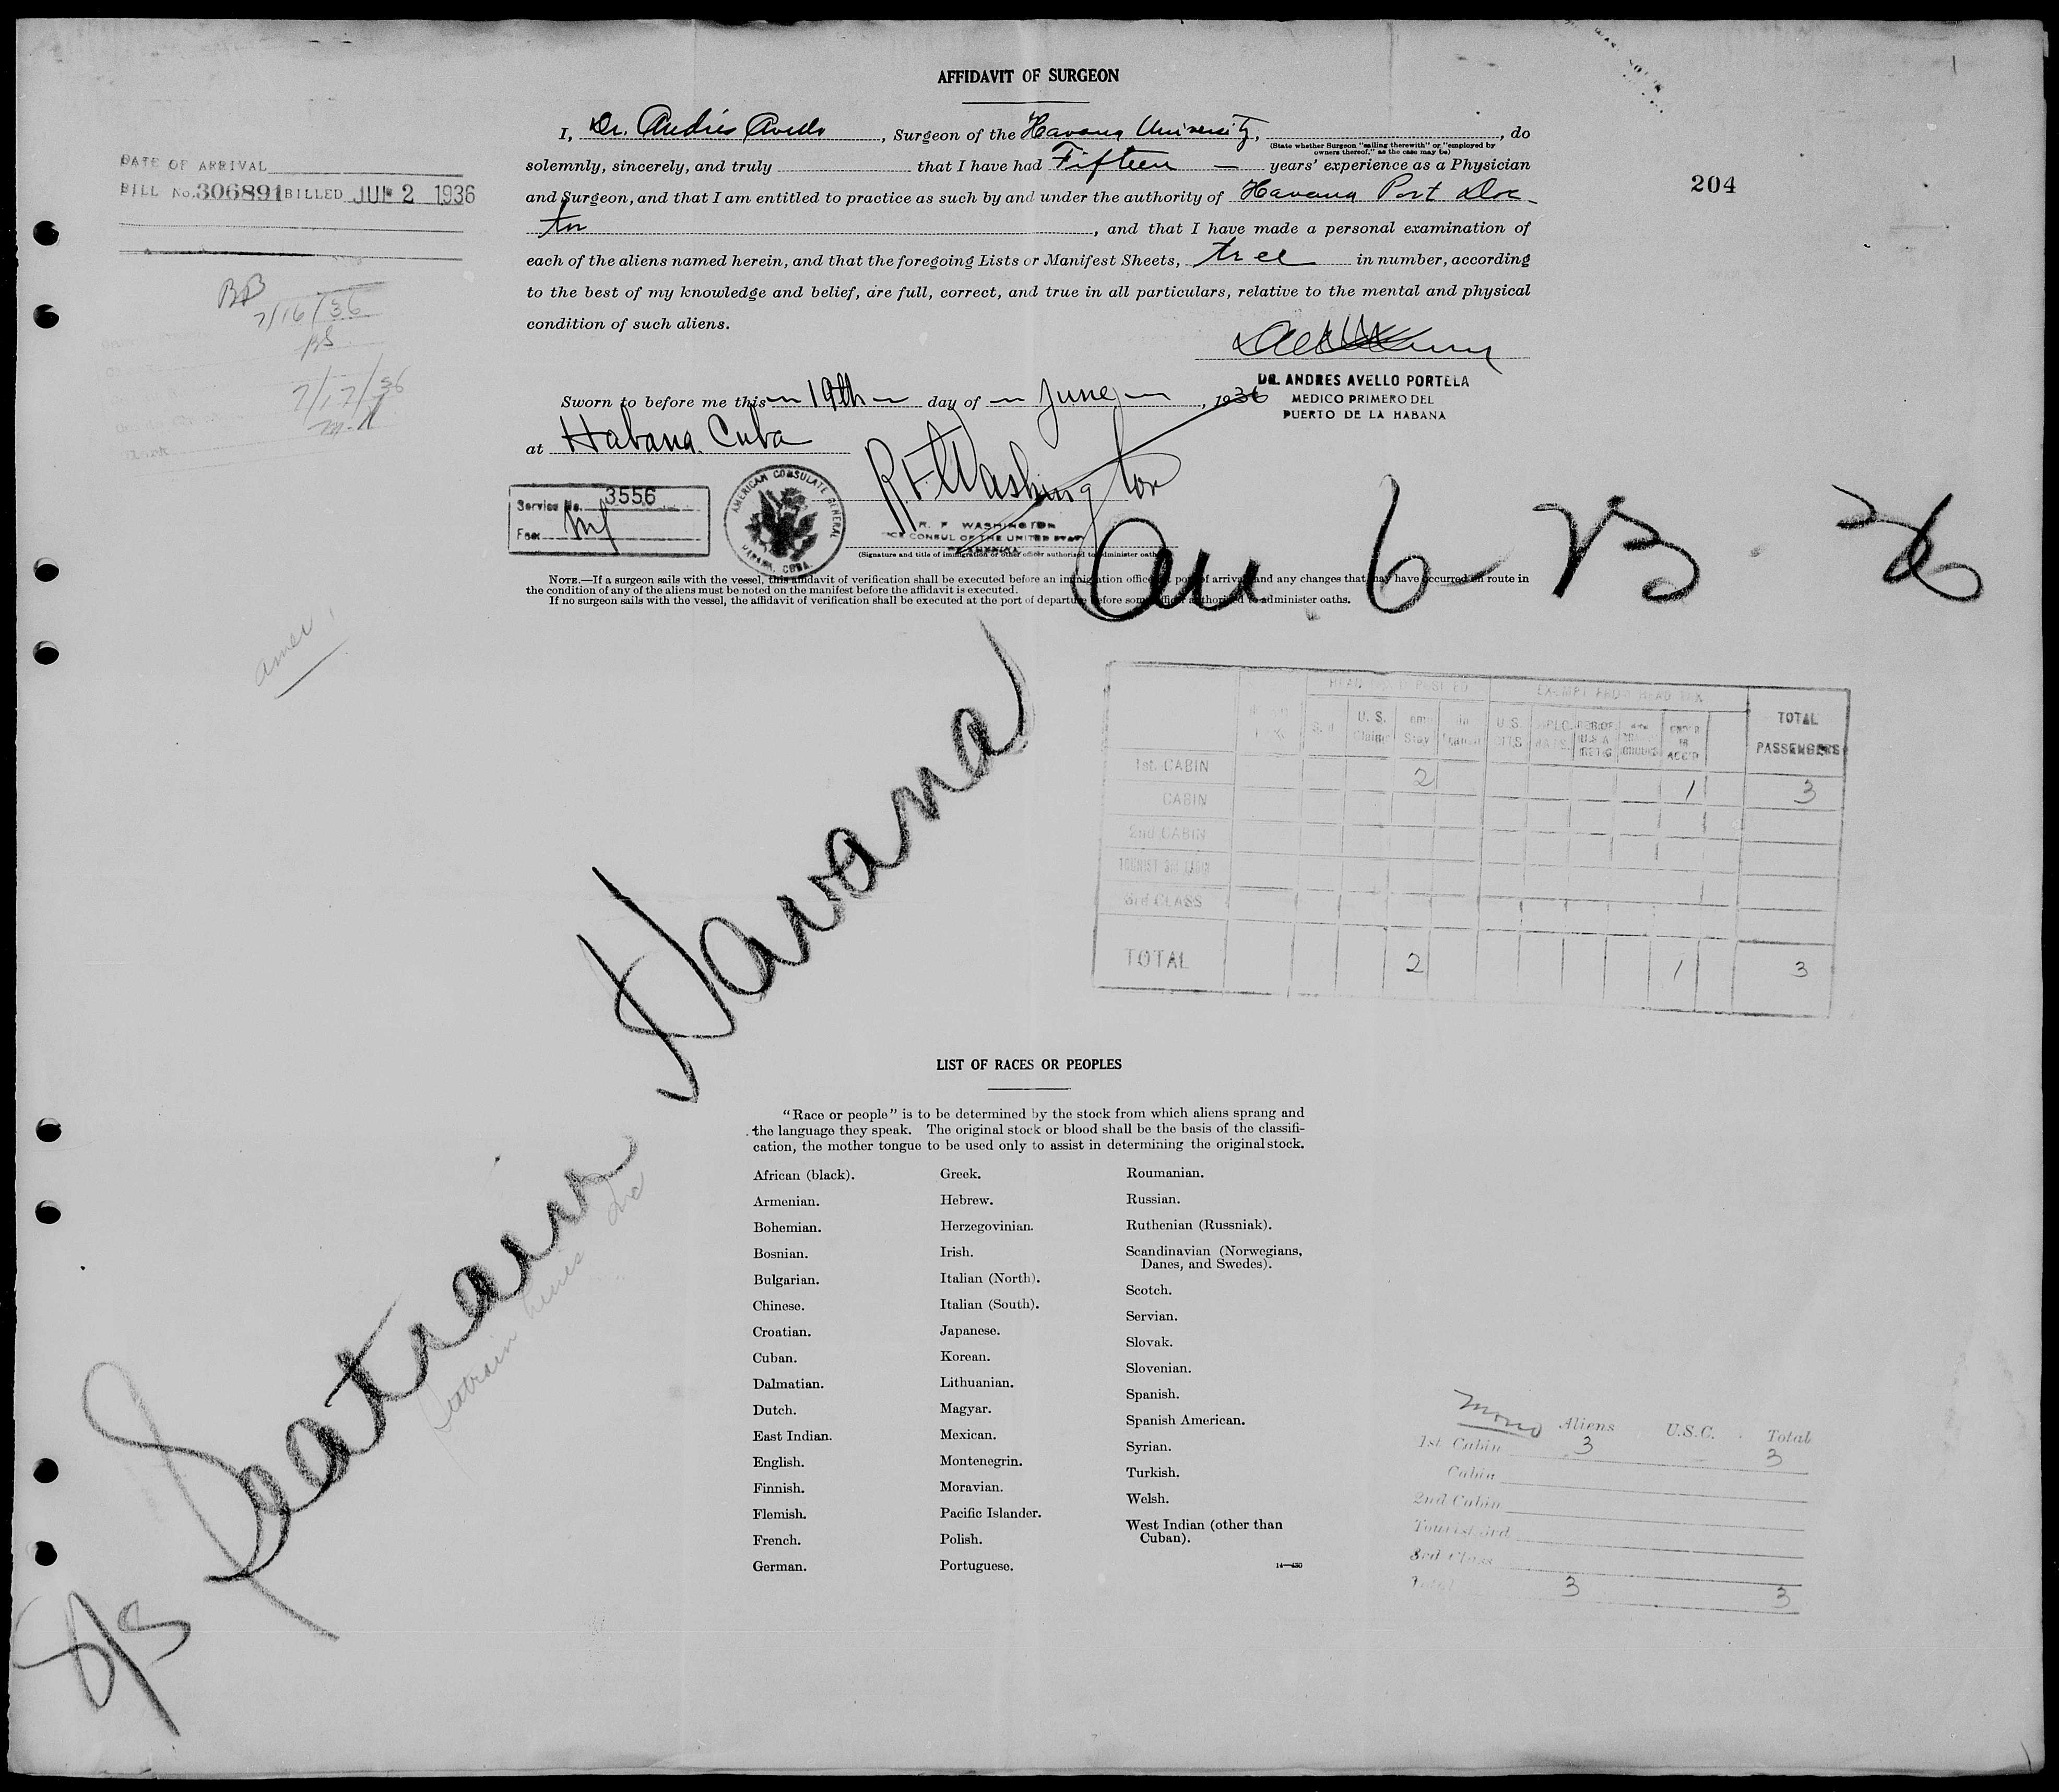 AFFIDAVIT OF SURGEON
I, Dr. Andrés Avello, Surgeon of the Havana University, , do
(State whether Surgeon "sailing therewith" or "employed by
owners thereof," as the case may be)
solemnly, sincerely, and truly that I have had Fifteen — years' experience as a Physician
and Surgeon, and that I am entitled to practice as such by and under the authority of Havana Port Doc-
tor , and that I have made a personal examination of
each of the aliens named herein, and that the foregoing Lists or Manifest Sheets, tree in number, according
to the best of my knowledge and belief, are full, correct, and true in all particulars, relative to the mental and physical
condition of such aliens.
DATE OF ARRIVAL
BILL No. 306891 BILLED JUL 2 1936
204
BB
7/16/36
BS
7/17/36
DR. ANDRES AVELLO PORTELA
MEDICO PRIMERO DEL
PUERTO DE LA HABANA
Sworn to before me this 19th day of June, 1936
at Habana. Cuba
R F Washington
Service No. 3556
Fee:
AMERICAN CONSULATE GENERAL
HABANA, CUBA.
R. F. WASHINGTON
VICE CONSUL OF THE UNITED STATES
OF AMERICA
(Signature and title of immigration or other officer authorized to administer oaths)
Arr. 6-23-36
NOTE.—If a surgeon sails with the vessel, this affidavit of verification shall be executed before an immigration officer at port of arrival and any changes that may have occurred en route in
the condition of any of the aliens must be noted on the manifest before the affidavit is executed.
If no surgeon sails with the vessel, the affidavit of verification shall be executed at the port of departure before some officer authorized to administer oaths.
HEAD TAX DEPOSITED EXEMPT FROM HEAD TAX TOTAL PASSENGERS
U. S. Claims Tem Stay In Transit U.S. CITS
1st. CABIN 2 1 3
CABIN
2nd CABIN
TOURIST 3rd CABIN
3rd CLASS
TOTAL 2 1 3
S/S Seatrain Havana
Seatrain Lines Inc
LIST OF RACES OR PEOPLES
"Race or people" is to be determined by the stock from which aliens sprang and
the language they speak. The original stock or blood shall be the basis of the classifi-
cation, the mother tongue to be used only to assist in determining the original stock.
African (black).
Armenian.
Bohemian.
Bosnian.
Bulgarian.
Chinese.
Croatian.
Cuban.
Dalmatian.
Dutch.
East Indian.
English.
Finnish.
Flemish.
French.
German.
Greek.
Hebrew.
Herzegovinian.
Irish.
Italian (North).
Italian (South).
Japanese.
Korean.
Lithuanian.
Magyar.
Mexican.
Montenegrin.
Moravian.
Pacific Islander.
Polish.
Portuguese.
Roumanian.
Russian.
Ruthenian (Russniak).
Scandinavian (Norwegians,
Danes, and Swedes).
Scotch.
Servian.
Slovak.
Slovenian.
Spanish.
Spanish American.
Syrian.
Turkish.
Welsh.
West Indian (other than
Cuban).
14—430
Aliens U.S.C. Total
1st Cabin 3 — 3
Cabin
2nd Cabin
Tourist 3rd
3rd Class
Total 3 3